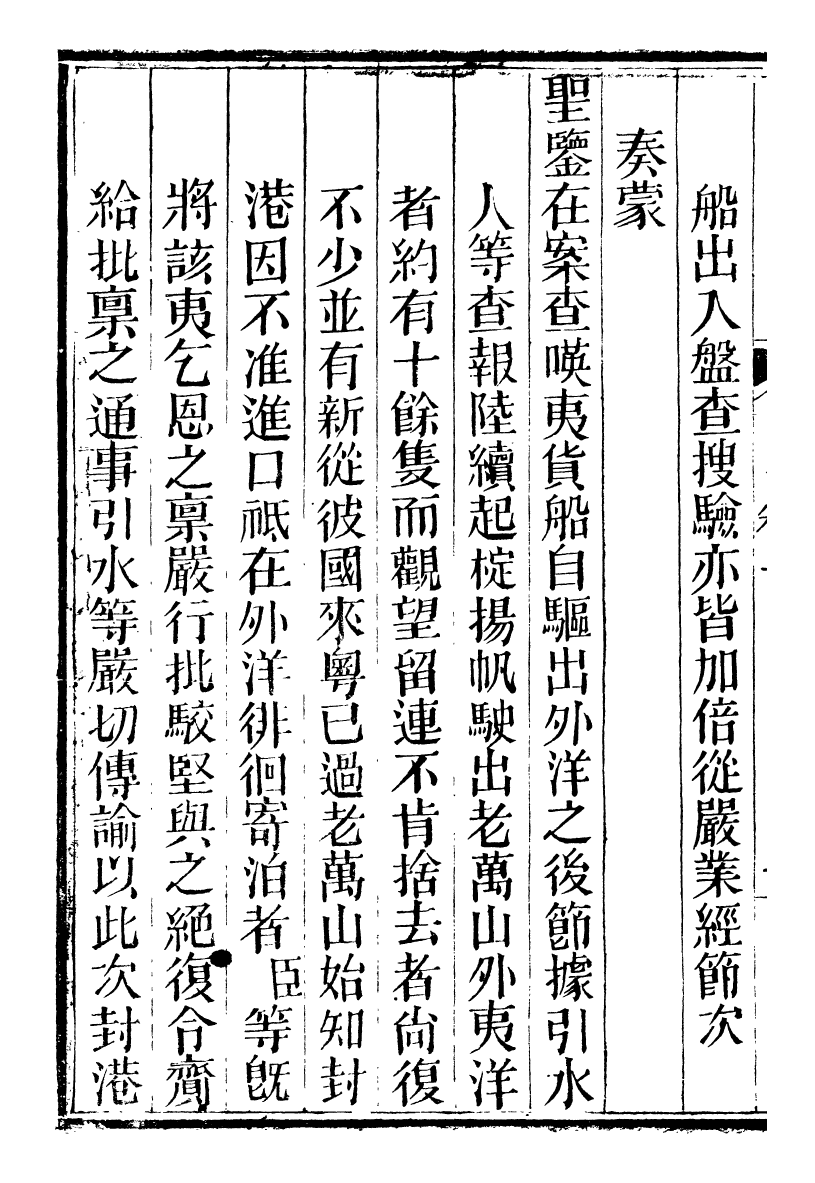 船出入盤查搜驗亦皆加倍從嚴業經節次
奏蒙
聖鑒在案查㗸夷貨船自驅出外洋之後節據引水
人等查報陸續起椗揚帆駛出老萬山外夷洋
者約有十餘隻而觀望留連不肯捨去者尙復
不少並有新從彼國來粵已過老萬山始知封
港因不准進口祗在外洋徘徊寄泊者臣等旣
將該夷乞恩之稟嚴行批駮堅與之絕復令齎
給批稟之通事引水等嚴切傳諭以此次封港